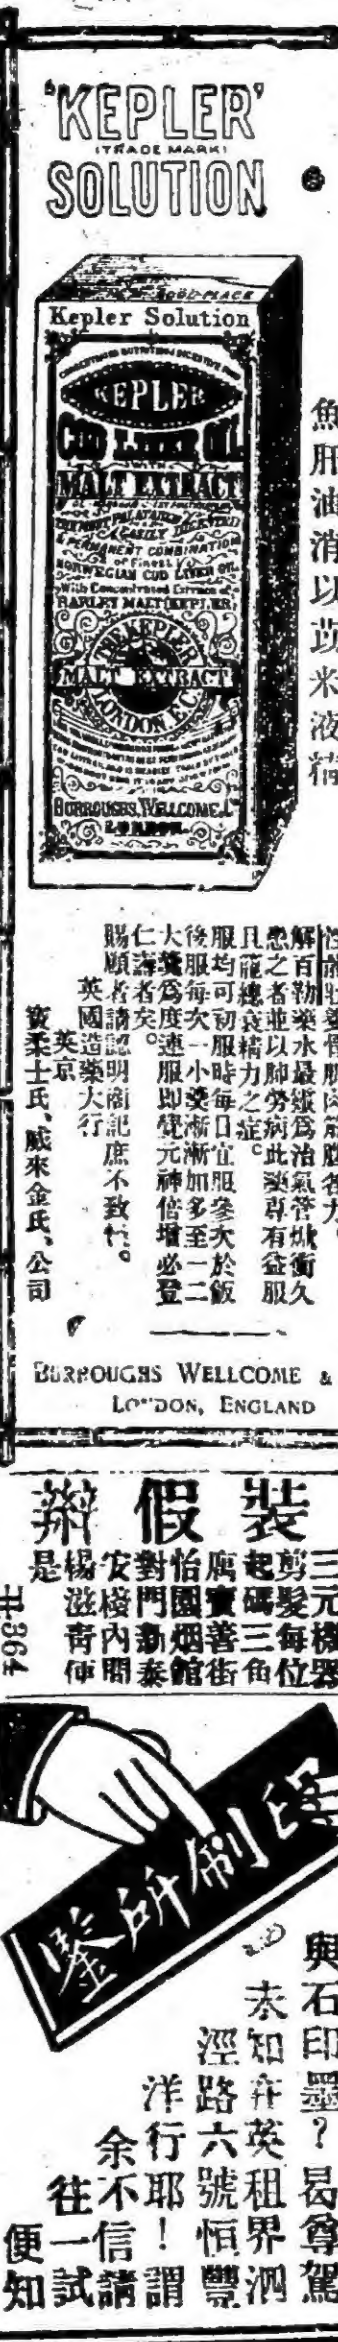 'KEPLER'
(TRADE MARK)
SOLUTION
Kepler Solution
KEPLER
COD LIVER OIL
WITH
MALT EXTRACT
THE MOST PALATABLE
& EASILY DIGESTED
& PERMANENT COMBINATION
of Finest
NORWEGIAN COD LIVER OIL
With Concentrated Extract of
BARLEY MALT (KEPLER)
THE KEPLER
MALT EXTRACT
LONDON E.C.
BURROUGHS, WELLCOME
LONDON
魚肝油消以苡米液精
解百勒藥水最縱為治氣管炊衝久
患之者並以肺勞病此藥專有益服
且蘢總衰精力之症。
服均可初服時每日宜服參次於飯
後服每次一小羹漸漸加多至一二
大羹為度連服即覺元神倍增必登
仁壽者矣。
賜顧者請認明商記庶不致悞。
英國造藥大行
英京
寳柔士氏、威來金氏、公司
BURROUGHS WELLCOME &
LONDON, ENGLAND
裝假辮
三元機器
剪髮每位
起碼三角
寓寳善街
怡園烟館
對門新泰
安棧內問
楊滋青便
是
364
印刷所鑒
與石印墨?曷尊駕
未知在英租界泗
涇路六號恒豐
洋行耶!謂
余不信請
往一試
便知